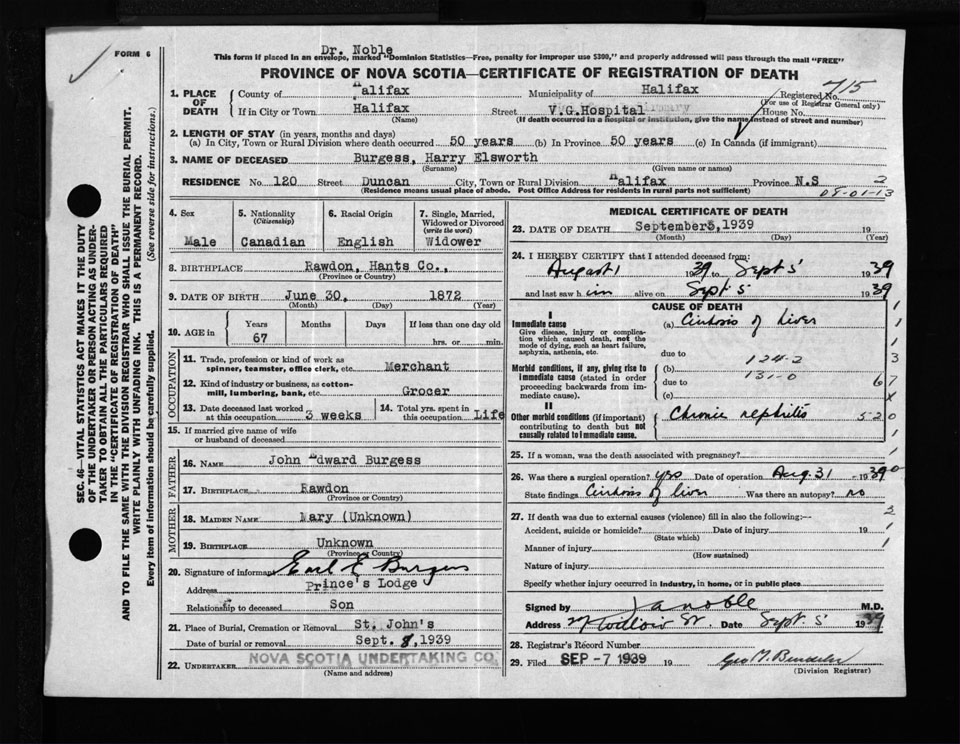 FORM 6
Dr. Noble
This form if placed in an envelope, marked "Dominion Statistics—Free, penalty for improper use $300," and properly addressed will pass through the mail "FREE"
PROVINCE OF NOVA SCOTIA—CERTIFICATE OF REGISTRATION OF DEATH
Registered No. 715
(For use of Registrar General only)
1. PLACE OF DEATH
County of Halifax Municipality of Halifax
If in City or Town Halifax Street V.G.Hospital House No.
(Name) (If death occurred in a hospital or institution, give the name instead of street and number)
2. LENGTH OF STAY (in years, months and days)
(a) In City, Town or Rural Division where death occurred 50 years (b) In Province 50 years (c) In Canada (if immigrant)
3. NAME OF DECEASED Burgess, Harry Elsworth
(Surname) (Given name or names)
RESIDENCE No. 120 Street Duncan City, Town or Rural Division Halifax Province N.S
(Residence means usual place of abode. Post Office Address for residents in rural parts not sufficient)
4. Sex 5. Nationality (Citizenship) 6. Racial Origin 7. Single, Married, Widowed or Divorced (write the word)
Male Canadian English Widower
8. BIRTHPLACE Rawdon, Hants Co.,
(Province or Country)
9. DATE OF BIRTH June 30, 1872
(Month) (Day) (Year)
10. AGE in Years Months Days If less than one day old
67 hrs. or min.
OCCUPATION
11. Trade, profession or kind of work as spinner, teamster, office clerk, etc. Merchant
12. Kind of industry or business, as cotton-mill, lumbering, bank, etc. Grocer
13. Date deceased last worked at this occupation 3 weeks 14. Total yrs. spent in this occupation Life
15. If married give name of wife or husband of deceased
FATHER
16. NAME John Edward Burgess
17. BIRTHPLACE Rawdon
(Province or Country)
MOTHER
18. MAIDEN NAME Mary (Unknown)
19. BIRTHPLACE Unknown
(Province or Country)
20. Signature of informant Earl E Burgess
Address Prince's Lodge
Relationship to deceased Son
21. Place of Burial, Cremation or Removal St. John's
Date of burial or removal Sept. 8, 1939
22. UNDERTAKER NOVA SCOTIA UNDERTAKING CO.
(Name and address)
MEDICAL CERTIFICATE OF DEATH
23. DATE OF DEATH September 5, 1939 19
(Month) (Day) (Year)
24. I HEREBY CERTIFY that I attended deceased from:
August 1 1939 to Sept 5 1939
and last saw him alive on Sept 5 1939
CAUSE OF DEATH
I
Immediate cause (a) Cirrhosis of liver
Give disease, injury or complication which caused death, not the mode of dying, such as heart failure, asphyxia, asthenia, etc.
due to
124-2
Morbid conditions, if any, giving rise to immediate cause (stated in order proceeding backwards from immediate cause).
(b)
131-0
due to
(c)
II
Other morbid conditions (if important) contributing to death but not causally related to immediate cause.
Chronic nephritis
25. If a woman, was the death associated with pregnancy?
26. Was there a surgical operation? yes Date of operation Aug. 31 1939
State findings Cirrhosis of liver Was there an autopsy? no
27. If death was due to external causes (violence) fill in also the following:—
Accident, suicide or homicide? Date of injury 19
(State which)
Manner of injury
(How sustained)
Nature of injury
Specify whether injury occurred in industry, in home, or in public place
Signed by J a noble M.D.
Address Date Sept 5 1939
28. Registrar's Record Number
29. Filed SEP -7 1939 19
(Division Registrar)
SEC. 46—VITAL STATISTICS ACT MAKES IT THE DUTY OF THE UNDERTAKER OR PERSON ACTING AS UNDERTAKER TO OBTAIN ALL THE PARTICULARS REQUIRED IN THE "CERTIFICATE OF REGISTRATION OF DEATH" AND TO FILE THE SAME WITH THE DIVISION REGISTRAR WHO SHALL ISSUE THE BURIAL PERMIT.
WRITE PLAINLY WITH UNFADING INK. THIS IS A PERMANENT RECORD.
Every item of information should be carefully supplied. (See reverse side for instructions.)